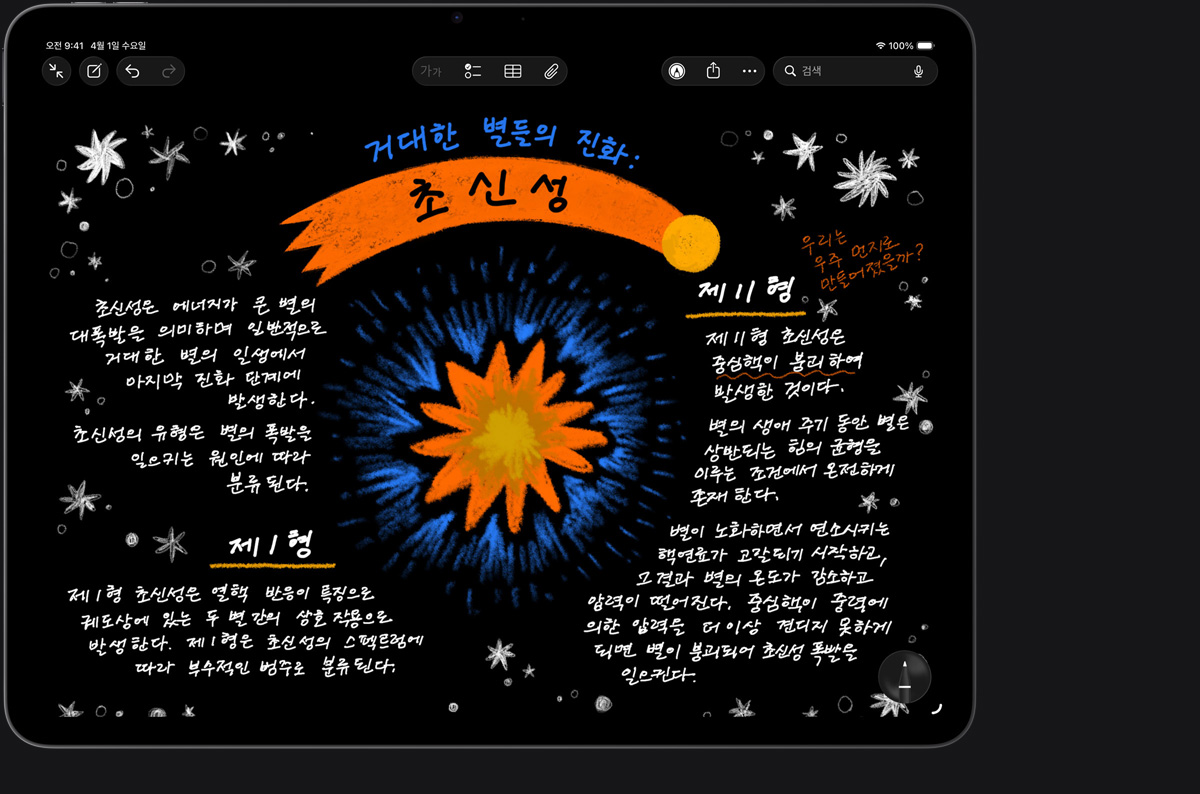 오전 9:41 4월 1일 수요일
100%
가가
검색
거대한 별들의 진화:
초신성
우리는
우주 먼지로
만들어졌을까?
초신성은 에너지가 큰 별의
대폭발을 의미하며 일반적으로
거대한 별의 일생에서
마지막 진화 단계에
발생한다.
초신성의 유형은 별의 폭발을
일으키는 원인에 따라
분류된다.
제1형
제1형 초신성은 열핵 반응이 특징으로
궤도상에 있는 두 별 간의 상호 작용으로
발생한다. 제1형은 초신성의 스펙트럼에
따라 부수적인 범주로 분류된다.
제11형
제11형 초신성은
중심핵이 붕괴하여
발생한 것이다.
별의 생애 주기 동안 별은
상반되는 힘의 균형을
이루는 조건에서 온전하게
존재한다.
별이 노화하면서 연소시키는
핵연료가 고갈되기 시작하고,
그 결과 별의 온도가 감소하고
압력이 떨어진다. 중심핵이 중력에
의한 압력을 더 이상 견디지 못하게
되면 별이 붕괴되어 초신성 폭발을
일으킨다.